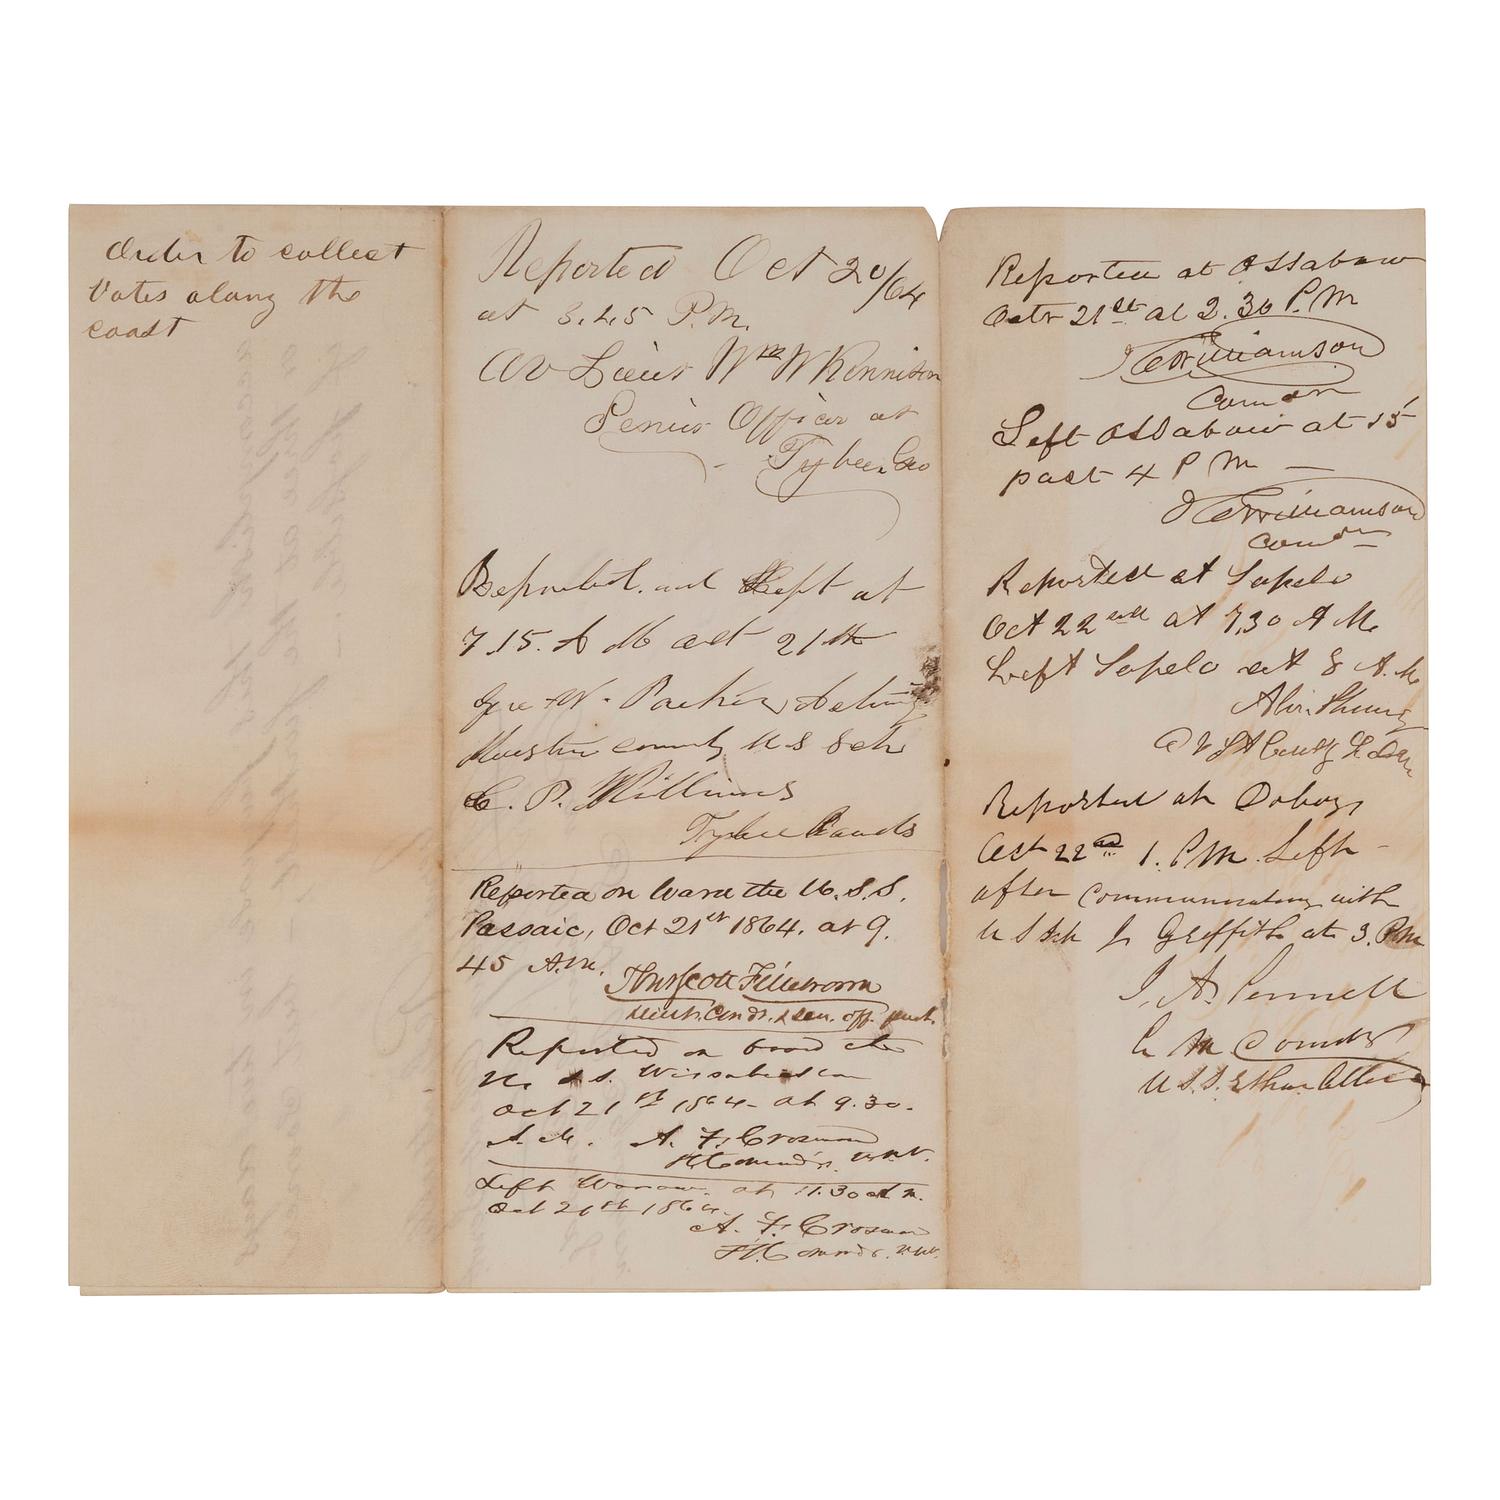 Order to collect
Votes along the
coast
Reported Oct 20/64
at 3.45 P.M.
Av Lieut Wm W Kennison
Senior Officer at
Tybee, Geo
Reported and Left at
7.15. A M oct 21th
Geo W. Parker Acting
Master comdg U S Sch
C. P. Williams
Tybee Roads
Reported on board the U.S.S.
Passaic, Oct 21st 1864. at 9.
45 A.M.
T. Scott Fillebrown
Lieut. Comdr. & Sen. off. pres't.
Reported on board the
U. S.S. Wissahickon
Oct 21st 1864 at 9.30.
A.M. A. F. Crosman
Lt Commd'r. U.S.N.
Left Warsaw. at 11.30 A.M.
Oct 21st 1864.
A. F. Crosman
Lt Commd'r. U.S.N.
Reported at Ossabaw
Octr 21st at 2.30 P.M
J C Williamson
Comdr
Left Ossabaw at 15
past 4 P M —
J C Williamson
Comdr
Reported at Sapelo
Oct 22nd at 7.30 A M.
Left Sapelo at 8 A.M.
Reported at Doboy,
Oct 22nd 1. P.M. Left
after communicating with
U S Sch G. Griffith at 3. P.M.
J. A. Pennell
Comdg
U.S.S.